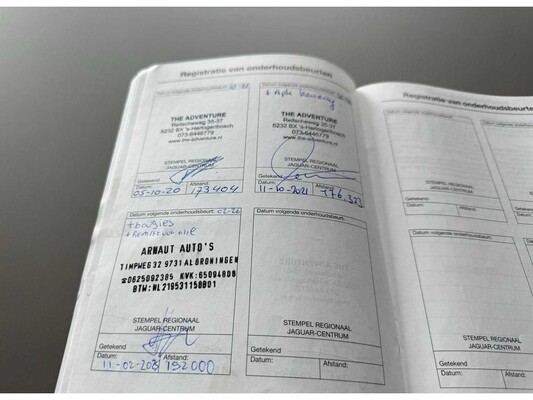 Registratie van onderhoudsbeurten
Datum volgende onderhoudsbeurt:
THE ADVENTURE
Rietschenweg 35-37
5232 BX 's-Hertogenbosch
073-6446779
www.the-adventure.nl
STEMPEL REGIONAAL
JAGUAR-CENTRUM
Getekend
Datum: Afstand:
05-10-20 173404
+ Apk keuring
THE ADVENTURE
5232 BX 's-Hertogenbosch
073-6446779
www.the-adventure.nl
STEMPEL REGIONAAL
JAGUAR-CENTRUM
Getekend
Datum: Afstand:
11-10-2021 176.323
Datum volgende onderhoudsbeurt: 02-26
+ bougies
+ Remvloeistof
ARNAUT AUTO'S
TIMPWEG 32 9731 AL GRONINGEN
☎0625092385 KVK:65094808
BTW:NL219531158B01
STEMPEL REGIONAAL
JAGUAR-CENTRUM
Getekend
Datum: Afstand:
11-02-2025 192000
Datum volgende onderhoudsbeurt:
STEMPEL REGIONAAL
JAGUAR-CENTRUM
Getekend
Datum: Afstand:
Registratie van onderhoudsbeurten
Datum volgende onderhoudsbeurt:
STEMPEL REGIONAAL
JAGUAR-CENTRUM
Getekend
Datum:
Datum volgende onderhoudsbeurt:
STEMPEL REGIONAAL
JAGUAR-CENTRUM
Getekend
Datum: